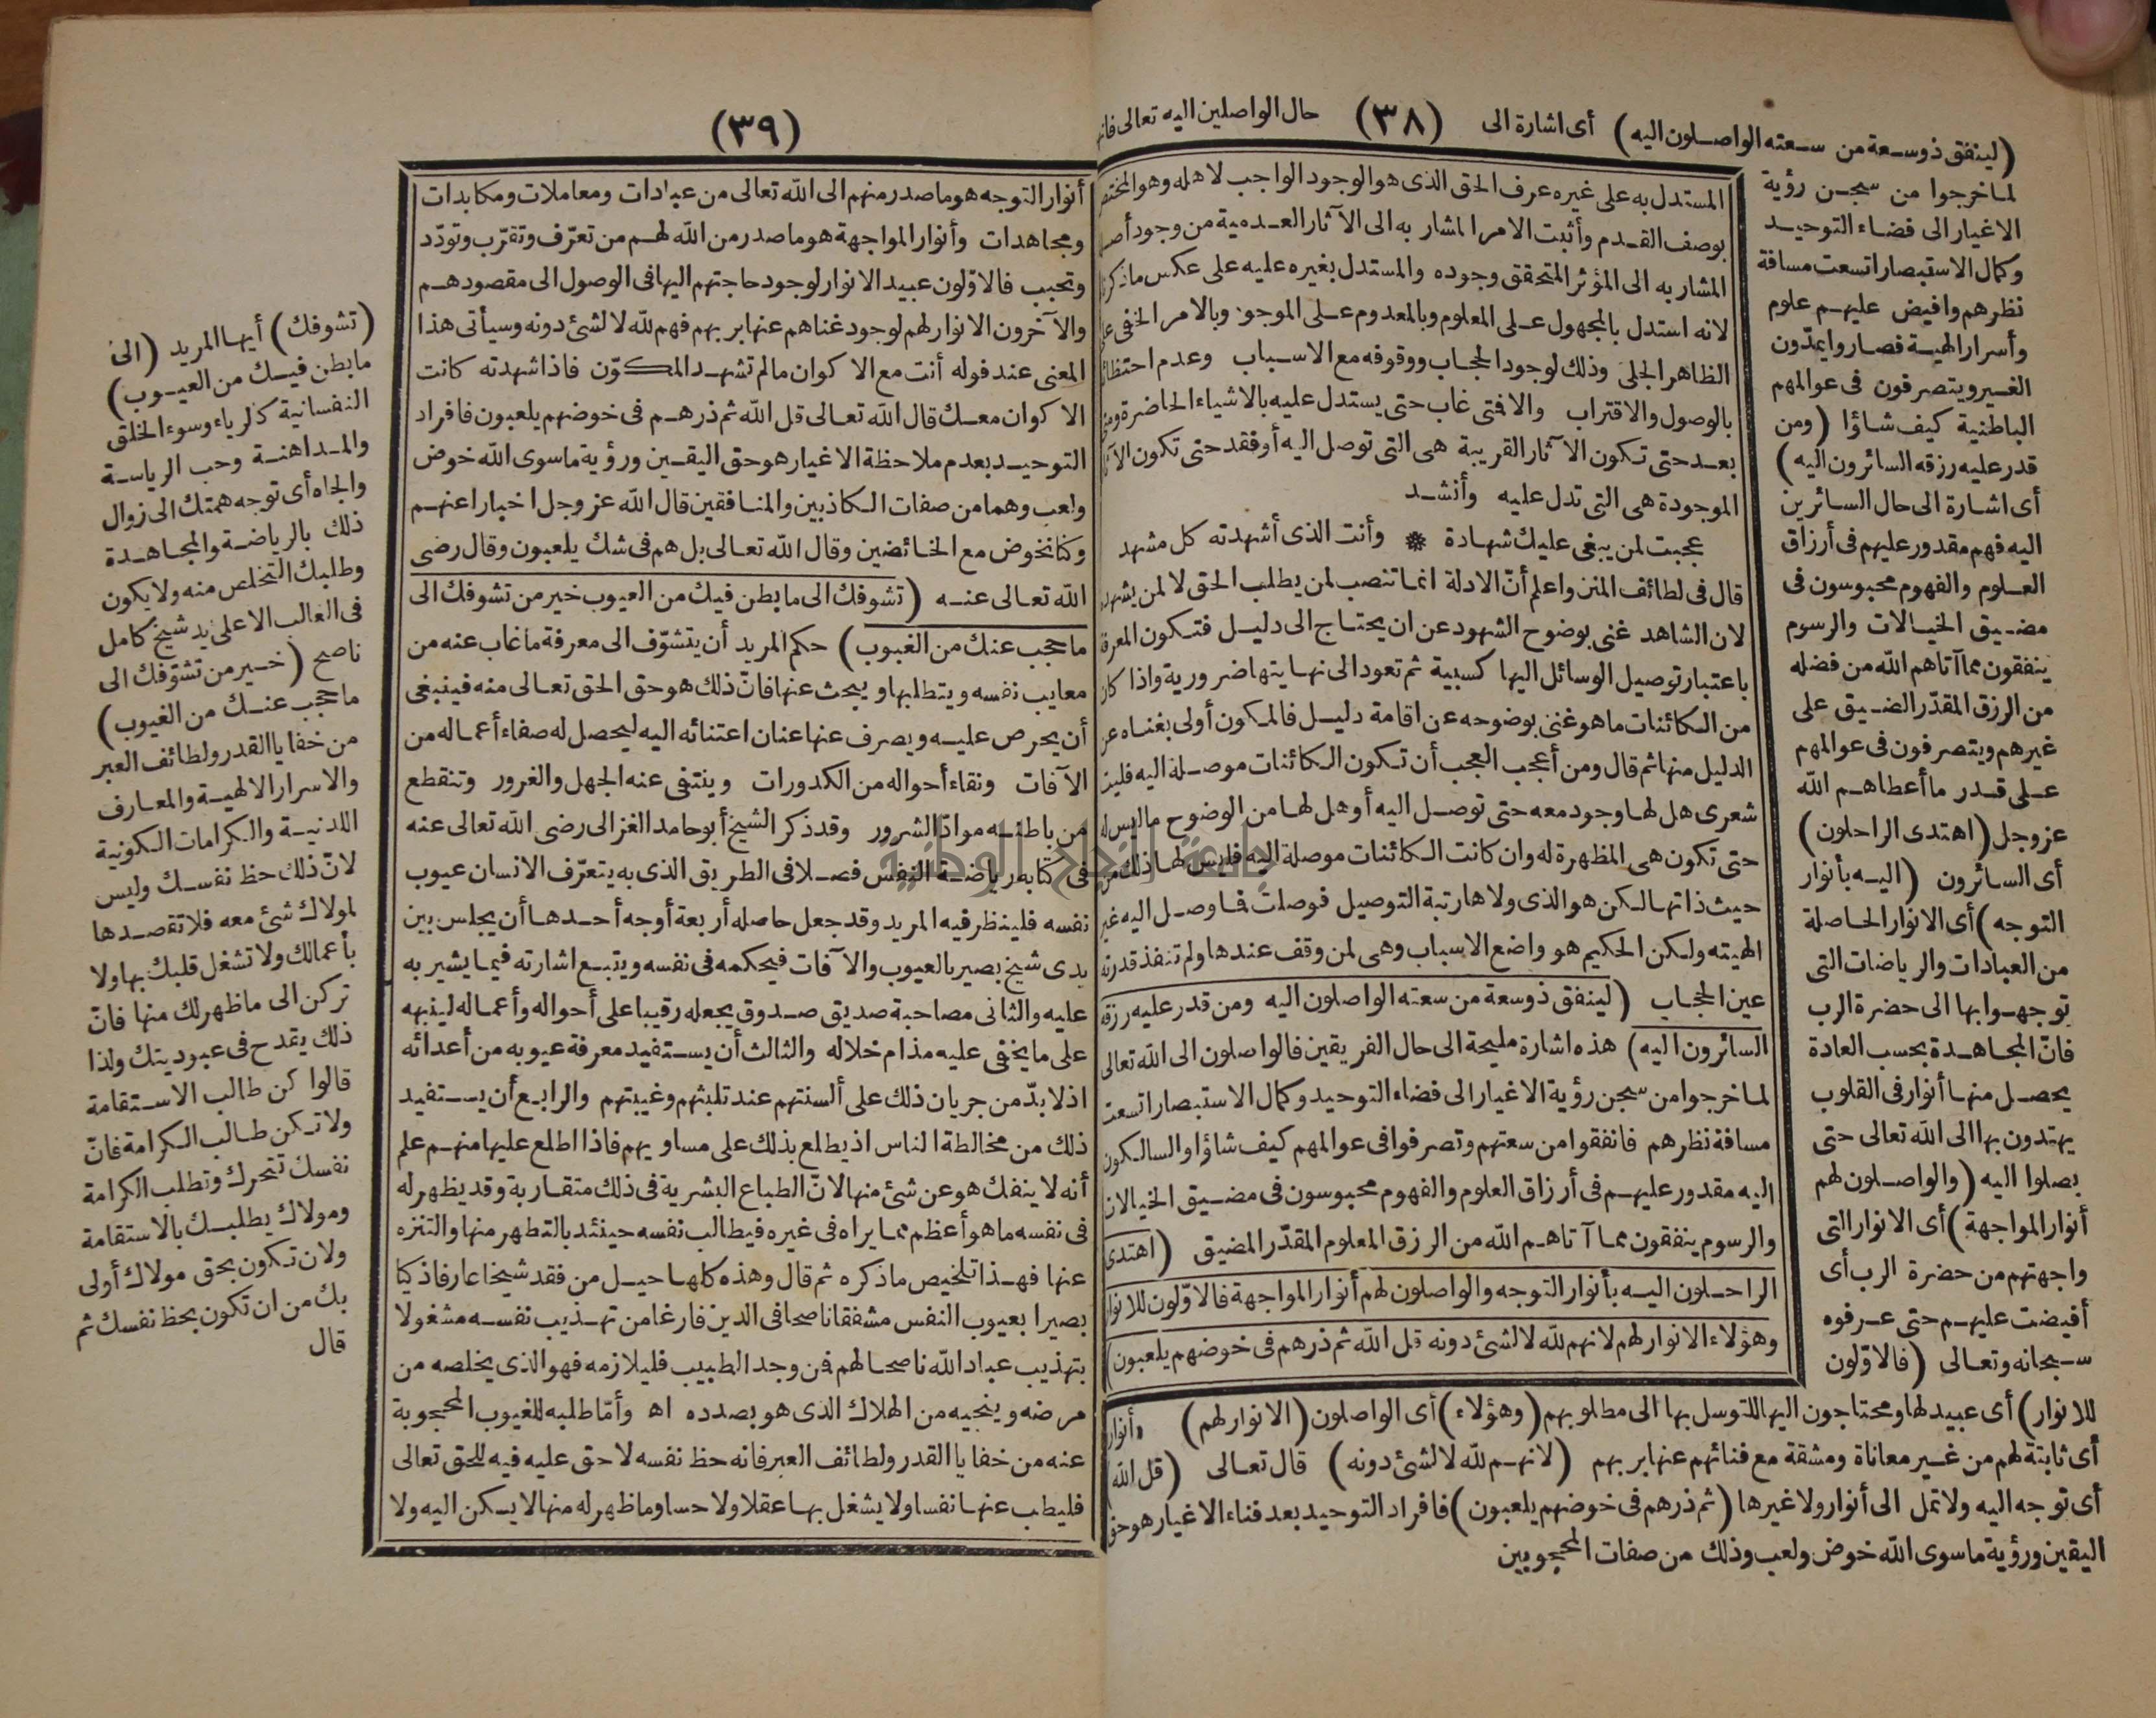 (لينفق ذوسعة من سعته الواصلون اليه) أى اشارة الى (٣٨) حال الواصلين اليه تعالى
لما خرجوا من سجن رؤية
الاغيار الى فضاء التوحيد
وكمال الاستبصار اتسعت مسافة
نظرهم وافيض عليهم علوم
وأسرار الهية فصار وايمدّون
الغير ويتصرفون فى عوالمهم
الباطنية كيف شاؤا (ومن
قدر عليه رزقه السائرون اليه)
أى اشارة الى حال السائرين
اليه فهم مقدور عليهم فى أرزاق
العلوم والفهوم محبوسون فى
مضيق الخيالات والرسوم
ينفقون مما آتاهم الله من فضله
من الرزق المقدّر الضيق على
غيرهم ويتصرفون فى عوالمهم
على قدر ما أعطاهم الله
عز وجل (اهتدى الراحلون)
أى السائرون (اليه بأنوار
التوجه) أى الانوار الحاصلة
من العبادات والرياضات التى
توجهوا بها الى حضرة الرب
فانّ المجاهدة بحسب العادة
يحصل منها أنوار فى القلوب
يهتدون بها الى الله تعالى حتى
يصلوا اليه (والواصلون لهم
أنوار المواجهة) أى الانوار التى
واجهتهم من حضرة الرب أى
أفيضت عليهم حتى عرفوه
سبحانه وتعالى (فالاوّلون
للانوار) أى عبيد لها ومحتاجون اليها للتوسل بها الى مطلوبهم (وهؤلاء) أى الواصلون (الانوار لهم)
أى ثابتة لهم من غير معاناة ومشقة مع فنائهم عنها بربهم (لانهم لله لا لشئ دونه) قال تعالى (قل الله)
أى توجه اليه ولا تمل الى أنوار ولا غيرها (ثم ذرهم فى خوضهم يلعبون) فافراد التوحيد بعد فناء الاغيار هو حق
اليقين ورؤية ما سوى الله خوض ولعب وذلك من صفات المحجوبين
المستدل به على غيره عرف الحق الذى هو الوجود الواجب لاهله وهو المختص
بوصف القدم وأثبت الامر المشار به الى الآثار العدمية من وجود أصله
المشار به الى المؤثر المتحقق وجوده والمستدل بغيره عليه على عكس ما ذكرنا
لانه استدل بالمجهول على المعلوم وبالمعدوم على الموجود وبالامر الخفى على
الظاهر الجلى وذلك لوجود الحجاب ووقوفه مع الاسباب وعدم احتظائه
بالوصول والاقتراب والا فتى غاب حتى يستدل عليه بالاشياء الحاضرة ومتى
بعد حتى تكون الآثار القريبة هى التى توصل اليه أو فقد حتى تكون الآثار
الموجودة هى التى تدل عليه وأنشد
عجبت لمن يبغى عليك شهادة * وأنت الذى أشهدته كل مشهد
قال فى لطائف المنن واعلم أنّ الادلة انما تنصب لمن يطلب الحق لا لمن يشهده
لان الشاهد غنى بوضوح الشهود عن ان يحتاج الى دليل فتكون المعرفة
باعتبار توصيل الوسائل اليها كسبية ثم تعود الى نهايتها ضرورية واذا كان
من الكائنات ما هو غنى بوضوحه عن اقامة دليل فالمكون أولى بغناه عن
الدليل منها ثم قال ومن أعجب العجب أن تكون الكائنات موصلة اليه فليت
شعرى هل لها وجود معه حتى توصل اليه أو هل لها من الوضوح ما ليس له
حتى تكون هى المظهرة له وان كانت الكائنات موصلة اليه فليس لها ذلك من
حيث ذاتها لكن هو الذى ولاها رتبة التوصيل فوصلت فما وصل اليه غير
الهيته ولكن الحكيم هو واضع الاسباب وهى لمن وقف عندها ولم تنفذ قدرته
عين الحجاب (لينفق ذوسعة من سعته الواصلون اليه ومن قدر عليه رزقه
السائرون اليه) هذه اشارة مليحة الى حال الفريقين فالواصلون الى الله تعالى
لما خرجوا من سجن رؤية الاغيار الى فضاء التوحيد وكمال الاستبصار اتسعت
مسافة نظرهم فانفقوا من سعتهم وتصرفوا فى عوالمهم كيف شاؤا والسالكون
اليه مقدور عليهم فى أرزاق العلوم والفهوم محبوسون فى مضيق الخيالات
والرسوم ينفقون مما آتاهم الله من الرزق المعلوم المقدّر المضيق (اهتدى
الراحلون اليه بأنوار التوجه والواصلون لهم أنوار المواجهة فالاوّلون للانوار
وهؤلاء الانوار لهم لانهم لله لا لشئ دونه قل الله ثم ذرهم فى خوضهم يلعبون)
(٣٩)
أنوار التوجه هو ما صدر منهم الى الله تعالى من عبادات ومعاملات ومكابدات
ومجاهدات وأنوار المواجهة هو ما صدر من الله لهم من تعرّف وتقرّب وتودّد
وتحبب فالاوّلون عبيد الانوار لوجود حاجتهم اليها فى الوصول الى مقصودهم
والآخرون الانوار لهم لوجود غناهم عنها بربهم فهم لله لا لشئ دونه وسيأتى هذا
المعنى عند قوله أنت مع الا كوان ما لم تشهد المكوّن فاذا شهدته كانت
الا كوان معك قال الله تعالى قل الله ثم ذرهم فى خوضهم يلعبون فافراد
التوحيد بعدم ملاحظة الاغيار هو حق اليقين ورؤية ما سوى الله خوض
ولعب وهما من صفات الكاذبين والمنافقين قال الله عز وجل اخبارا عنهم
وكنا نخوض مع الخائضين وقال الله تعالى بل هم فى شك يلعبون وقال رضى
الله تعالى عنه (تشوفك الى ما بطن فيك من العيوب خير من تشوفك الى
ما حجب عنك من الغيوب) حكم المريد أن يتشوّف الى معرفة ما غاب عنه من
معايب نفسه ويتطلبها ويبحث عنها فانّ ذلك هو حق الحق تعالى منه فينبغى
أن يحرص عليه ويصرف عنها عنان اعتنائه اليه ليحصل له صفاء أعماله من
الآفات ونقاء أحواله من الكدورات وينتفى عنه الجهل والغرور وتنقطع
من باطنه موادّ الشرور وقد ذكر الشيخ أبو حامد الغزالى رضى الله تعالى عنه
فى كتابه رياضة النفس فصلا فى الطريق الذى به يتعرّف الانسان عيوب
نفسه فلينظر فيه المريد وقد جعل حاصله أربعة أوجه أحدها أن يجلس بين
يدى شيخ بصير بالعيوب والآفات فيحكمه فى نفسه ويتبع اشارته فيما يشير به
عليه والثانى مصاحبة صديق صدوق يجعله رقيبا على أحواله وأعماله لينبهه
على ما يخفى عليه من مذام خلاله والثالث أن يستفيد معرفة عيوبه من أعدائه
اذ لا بدّ من جريان ذلك على ألسنتهم عند تلبثهم وغيبتهم والرابع أن يستفيد
ذلك من مخالطة الناس اذ يطلع بذلك على مساويهم فاذا اطلع عليها منهم علم
أنه لا ينفك هو عن شئ منها لانّ الطباع البشرية فى ذلك متقاربة وقد يظهر له
فى نفسه ما هو أعظم مما يراه فى غيره فيطالب نفسه حينئذ بالتطهر منها والتنزه
عنها فهذا تلخيص ما ذكره ثم قال وهذه كلها حيل من فقد شيخا عارفا ذكيا
بصيرا بعيوب النفس مشفقا ناصحا فى الدين فارغا من تهذيب نفسه مشغولا
بتهذيب عباد الله ناصحا لهم فن وجد الطبيب فليلازمه فهو الذى يخلصه من
مرضه وينجيه من الهلاك الذى هو بصدده اه وأمّا طلبه للغيوب المحجوبة
عنه من خفايا القدر ولطائف العبر فانه حظ نفسه لا حق عليه فيه للحق تعالى
فليطب عنها نفسا ولا يشغل بها عقلا ولا حسا وما ظهر له منها لا يسكن اليه ولا
(تشوفك) أيها المريد (الى
ما بطن فيك من العيوب)
النفسانية كالرياء وسوء الخلق
والمداهنة وحب الرياسة
والجاه أى توجه همتك الى زوال
ذلك بالرياضة والمجاهدة
وطلبك التخلص منه ولا يكون
فى الغالب الا على يد شيخ كامل
ناصح (خير من تشوّفك الى
ما حجب عنك من الغيوب)
من خفايا القدر ولطائف العبر
والاسرار الالهية والمعارف
اللدنية والكرامات الكونية
لانّ ذلك حظ نفسك وليس
لمولاك شئ معه فلا تقصدها
بأعمالك ولا تشغل قلبك بها ولا
تركن الى ما ظهر لك منها فانّ
ذلك يقدح فى عبوديتك ولذا
قالوا كن طالب الاستقامة
ولا تكن طالب الكرامة فانّ
نفسك تتحرك وتطلب الكرامة
ومولاك يطلبك بالاستقامة
ولان تكون بحق مولاك أولى
بك من ان تكون بحظ نفسك ثم
قال
جامعة النجاح الوطنية